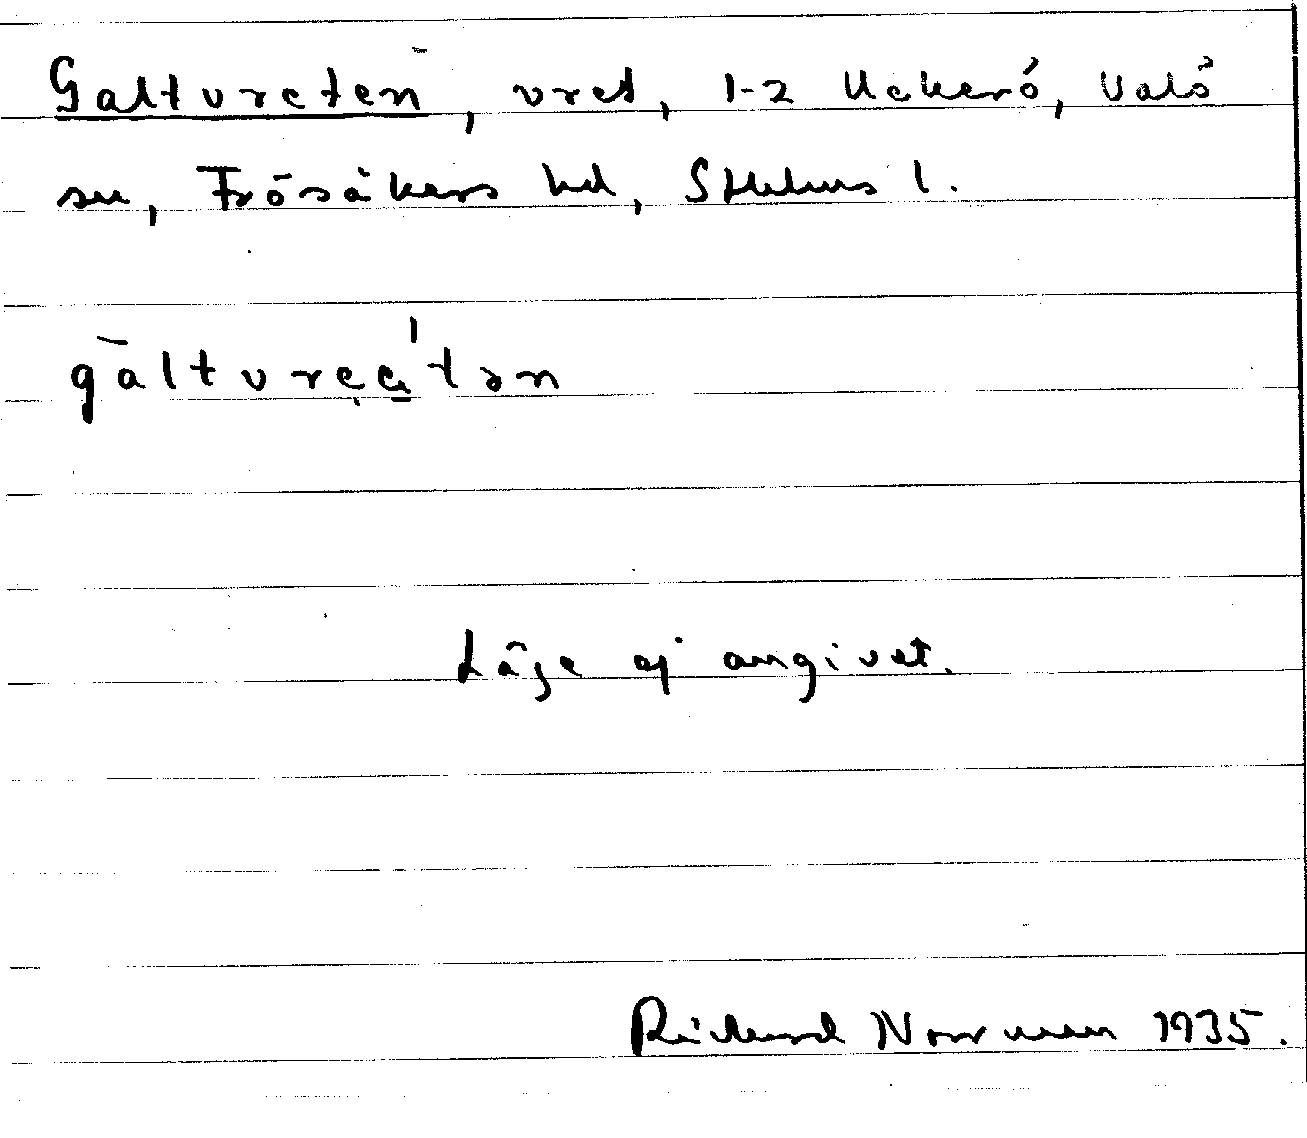 Galtvreten, vret, 1-2 Uckerö, Valö
sn, Frösåkers hd, Sthlms l.
gàltvrẹe̱'tən
Läge ej angivet.
Rickard Norrman 1935.